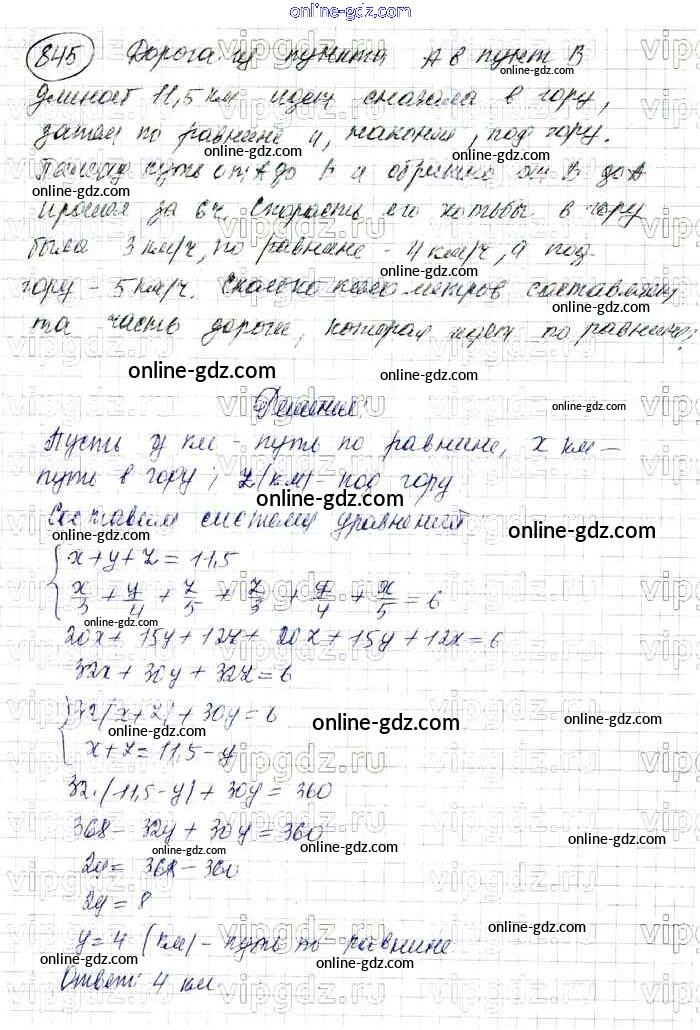 online-gdz.com
845 Дорога из пункта А в пункт В
длиной 11,5 км идет сначала в гору,
затем по равнине и, наконец, под гору.
Пешеход путь от А до В и обратно от В до А
прошел за 6ч. Скорость его ходьбы в гору
была 3 км/ч, по равнине - 4 км/ч, а под
гору - 5 км/ч. Сколько километров составляет
та часть дороги, которая идет по равнине?
online-gdz.com
Решение:
Пусть y км - путь по равнине, x км -
путь в гору; z(км) - под гору
online-gdz.com
Составим систему уравнений
x+y+z = 11,5
x/3 + y/4 + z/5 + z/3 + y/4 + x/5 = 6
20x + 15y + 12z + 20x + 15y + 12x = 6
32x + 30y + 32z = 6
32(x+z) + 30y = 6
x+z = 11,5 - y
32·(11,5-y) + 30y = 360
368 - 32y + 30y = 360
2y = 368 - 360
2y = 8
y = 4 (км) - путь по равнине
Ответ: 4 км.
online-gdz.com